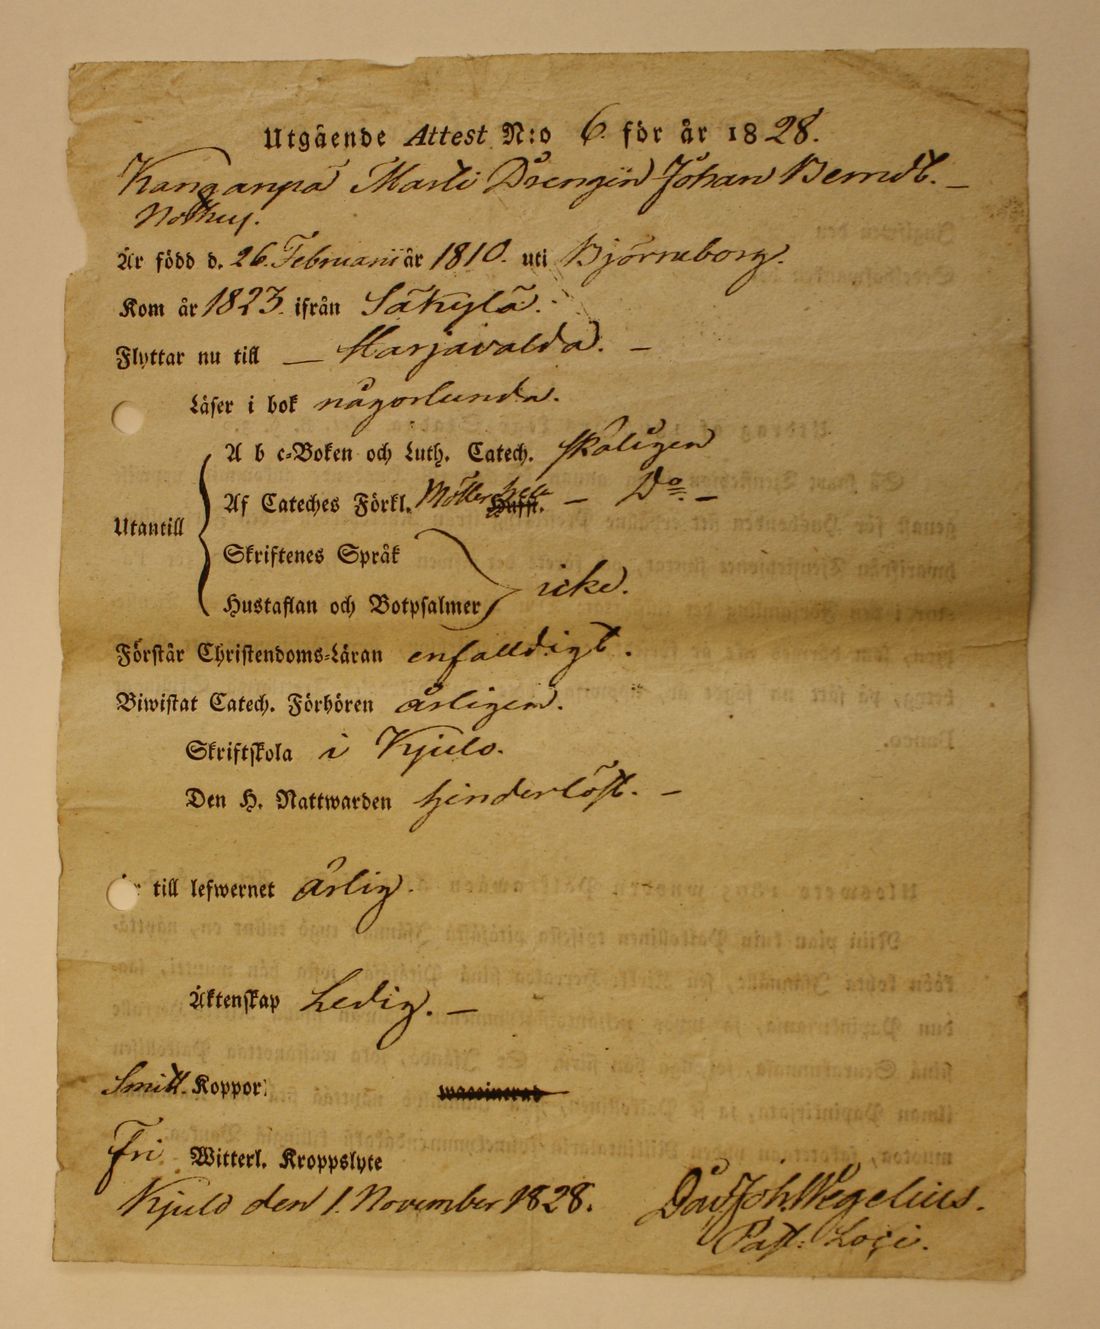 Utgående Attest N:o 6 för år 1828.
Kanganpä Matti Drengen Johan Berndt. —
Nothus.
Är född d. 26. Februarii år 1810. uti Björneborg.
Kom år 1823. ifrån Säkylä.
Flyttar nu till — Harjavalda. —
Läser i bok någorlunda.
A b c-Boken och Luth. Catech. skäligen
Af Cateches Förkl. — Do —
Utantill
Skriftenes Språk
icke.
Hustaflan och Botpsalmer
Förstår Christendoms-Läran enfalldigt.
Biwistat Catech. Förhören årligen.
Skriftskola i Kjulo.
Den H. Nattwarden hinderlöst. —
till lefwernet ärlig.
Äktenskap Ledig. —
Smitt. Koppor: waccinerad
Fri Witterl. Kroppslyte
Kjulo den 1. November 1828. Dav. Joh. Wegelius.
Past: Loci.